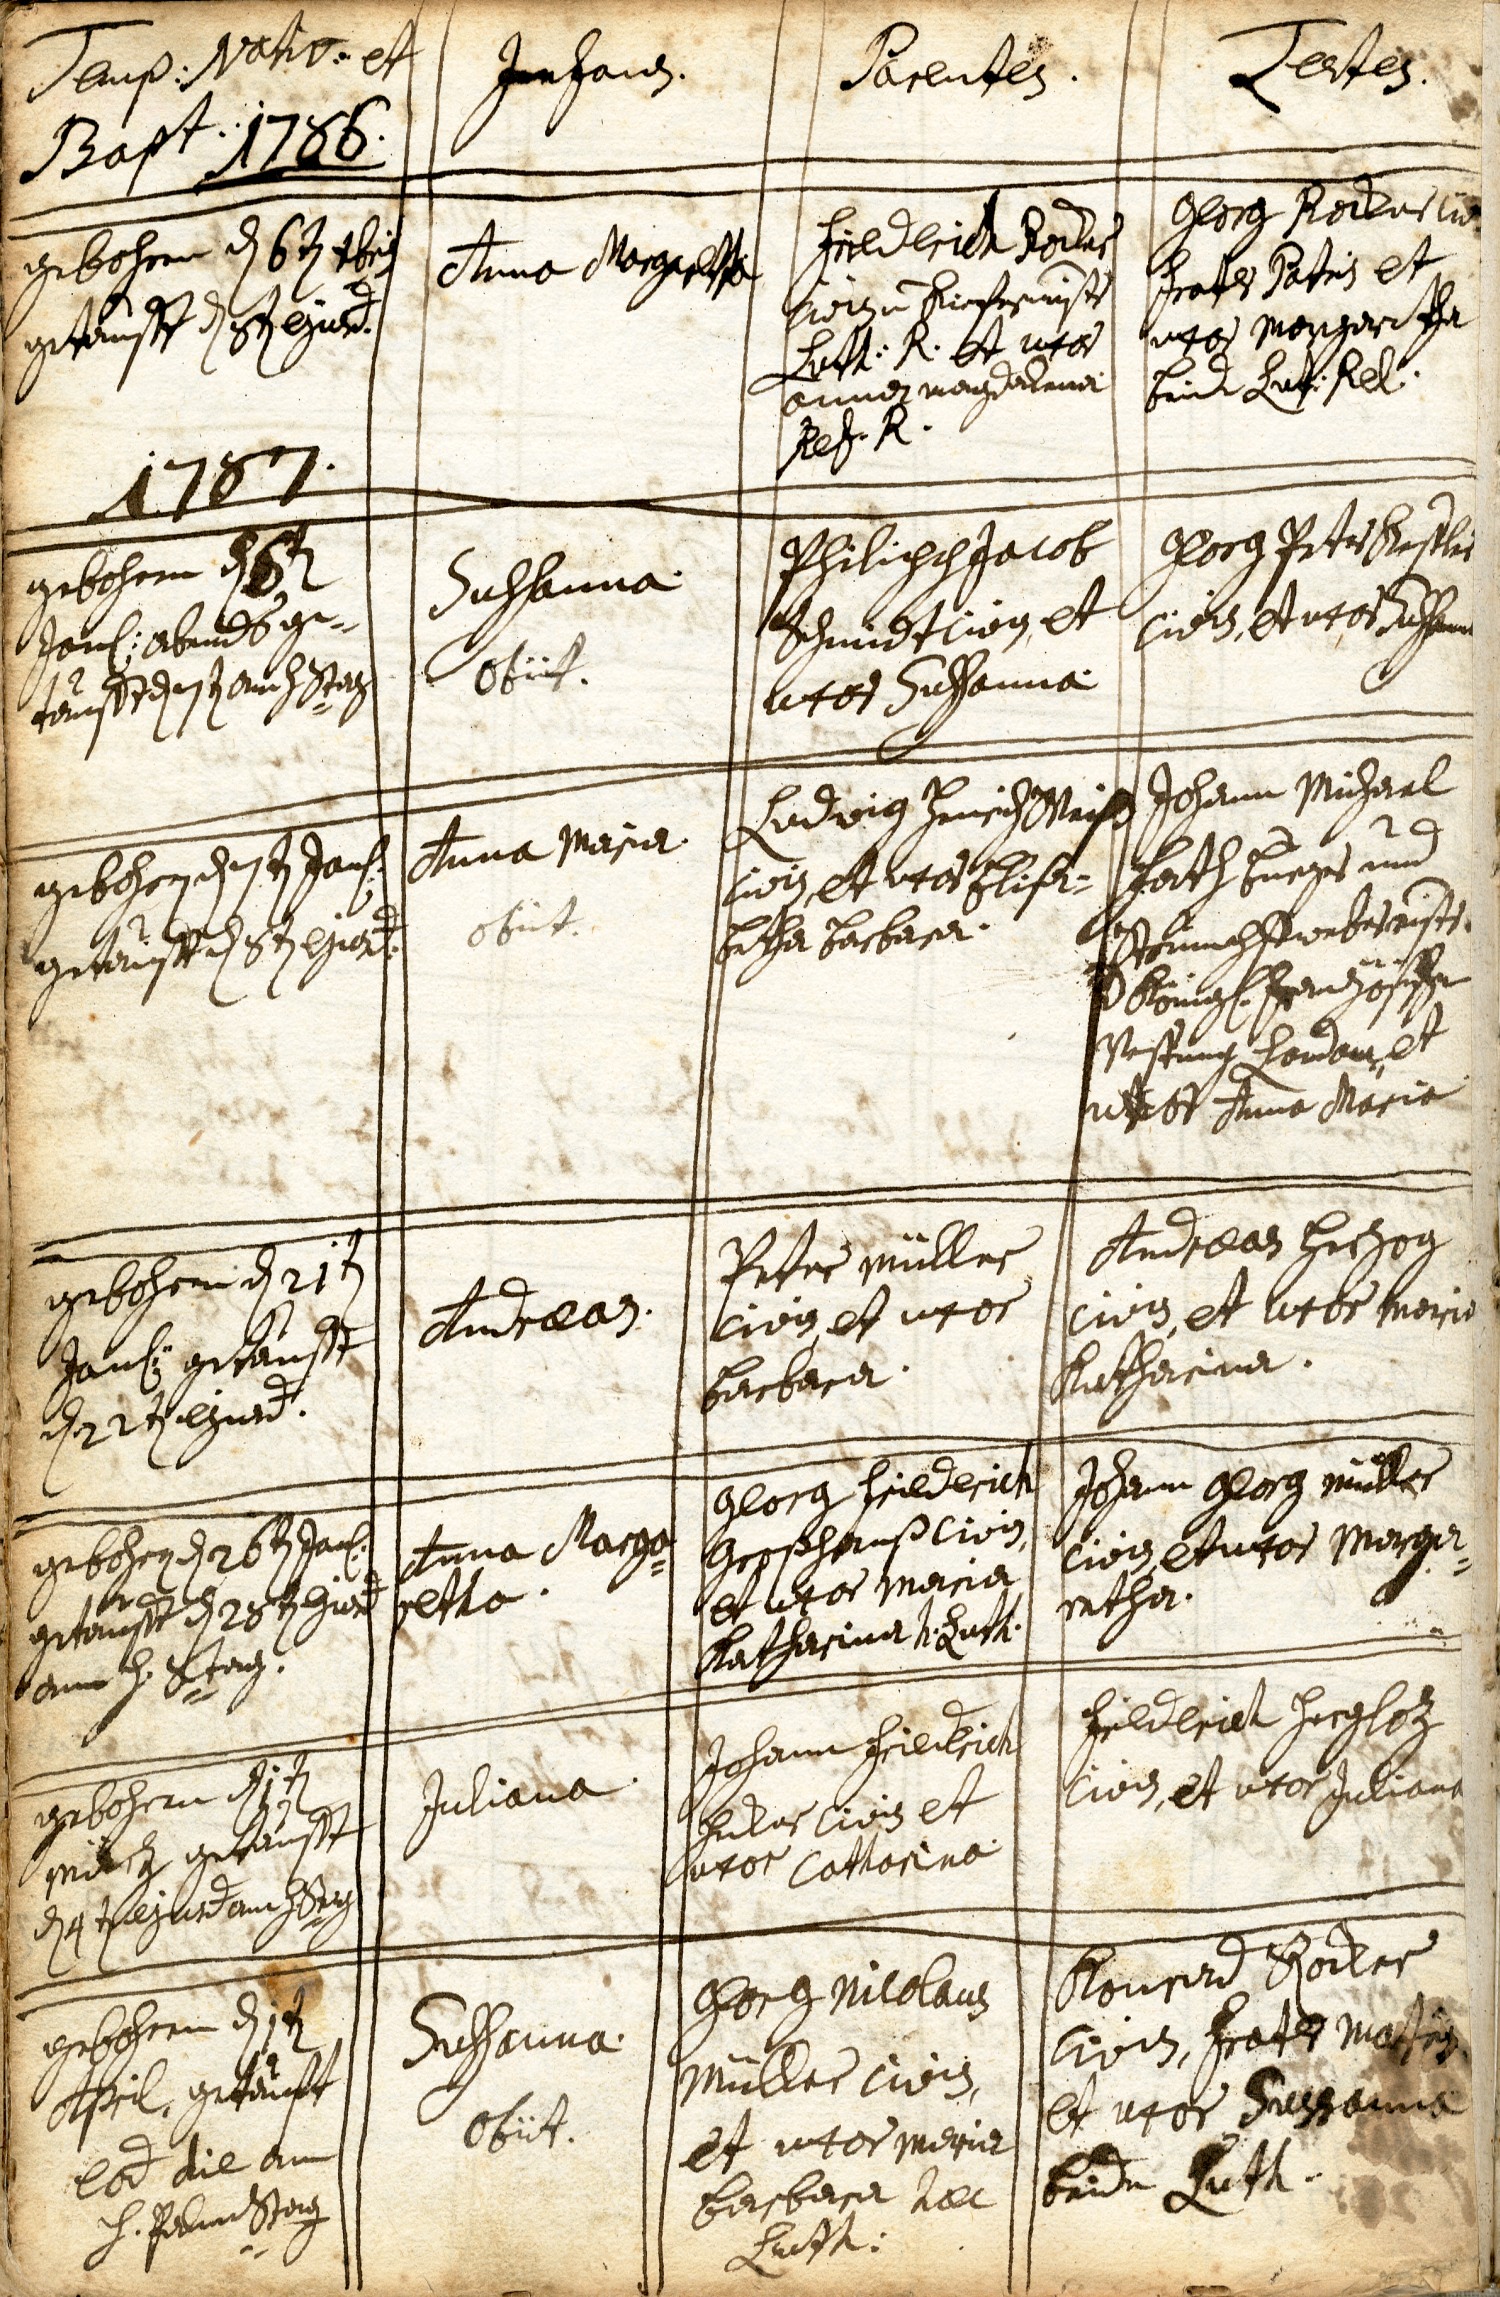 Temp: Nativ: et
Bapt: 1786.
Infans.
Parentes.
Testes.
gebohren d 6t xbris
getaufft d 8t ejusd.
Anna Margretha
Friedrich Rocker
civis u
Luth: R. et uxor
anna magdalena
Ref. R.
Georg Rocker civ.
frater Patris et
uxor Margaretha
beide Luth: Rel.
1787.
gebohren d 6t
Jan: abends ge=
taufft d 7t am Stag
Sussanna.
obiit.
Philipp Jacob
Schmidt civis, et
uxor Sussanna.
Georg Peter
civis, et uxor Sussanna
gebohren d 7t Jan:
getaufft d 8t ejusd:
Anna Maria.
obiit.
Ludwig Henrich
civis, et uxor Elisa=
betha Barbara.
Johann Michael
Burger und
Strumpffwebermstr.
Königl. Frantzösische
Vestung Landau, et
uxor Anna Maria
gebohren d 21t
Jan: getaufft
d 22t ejusd.
Andreas.
Peter Müller
civis, et uxor
Barbara.
Andreas Hertzog
civis, et uxor Maria
Katharina.
gebohren d 26t Jan:
getaufft d 28t ejusd
am h. Stag.
Anna Marga=
retha.
Georg Friedrich
civis,
et uxor Maria
Katharina h. Luth.
Johann Georg Müller
civis, et uxor Marga=
retha.
gebohren d 1t
Mertz getaufft
d 4t ejusd am h Stag
Juliana.
Johann Friedrich
civis et
uxor Catharina.
Friedrich Herglotz
civis, et uxor Juliana
gebohren d 1t
April, getaufft
eod die am
h. Palm Stag
Sussanna.
obiit.
Georg Nicolaus
Müller civis,
et uxor Maria
Barbara haec
Luth:
Konrad Rocker
civis, frater Matris,
et uxor Sussanna
beide Luth.